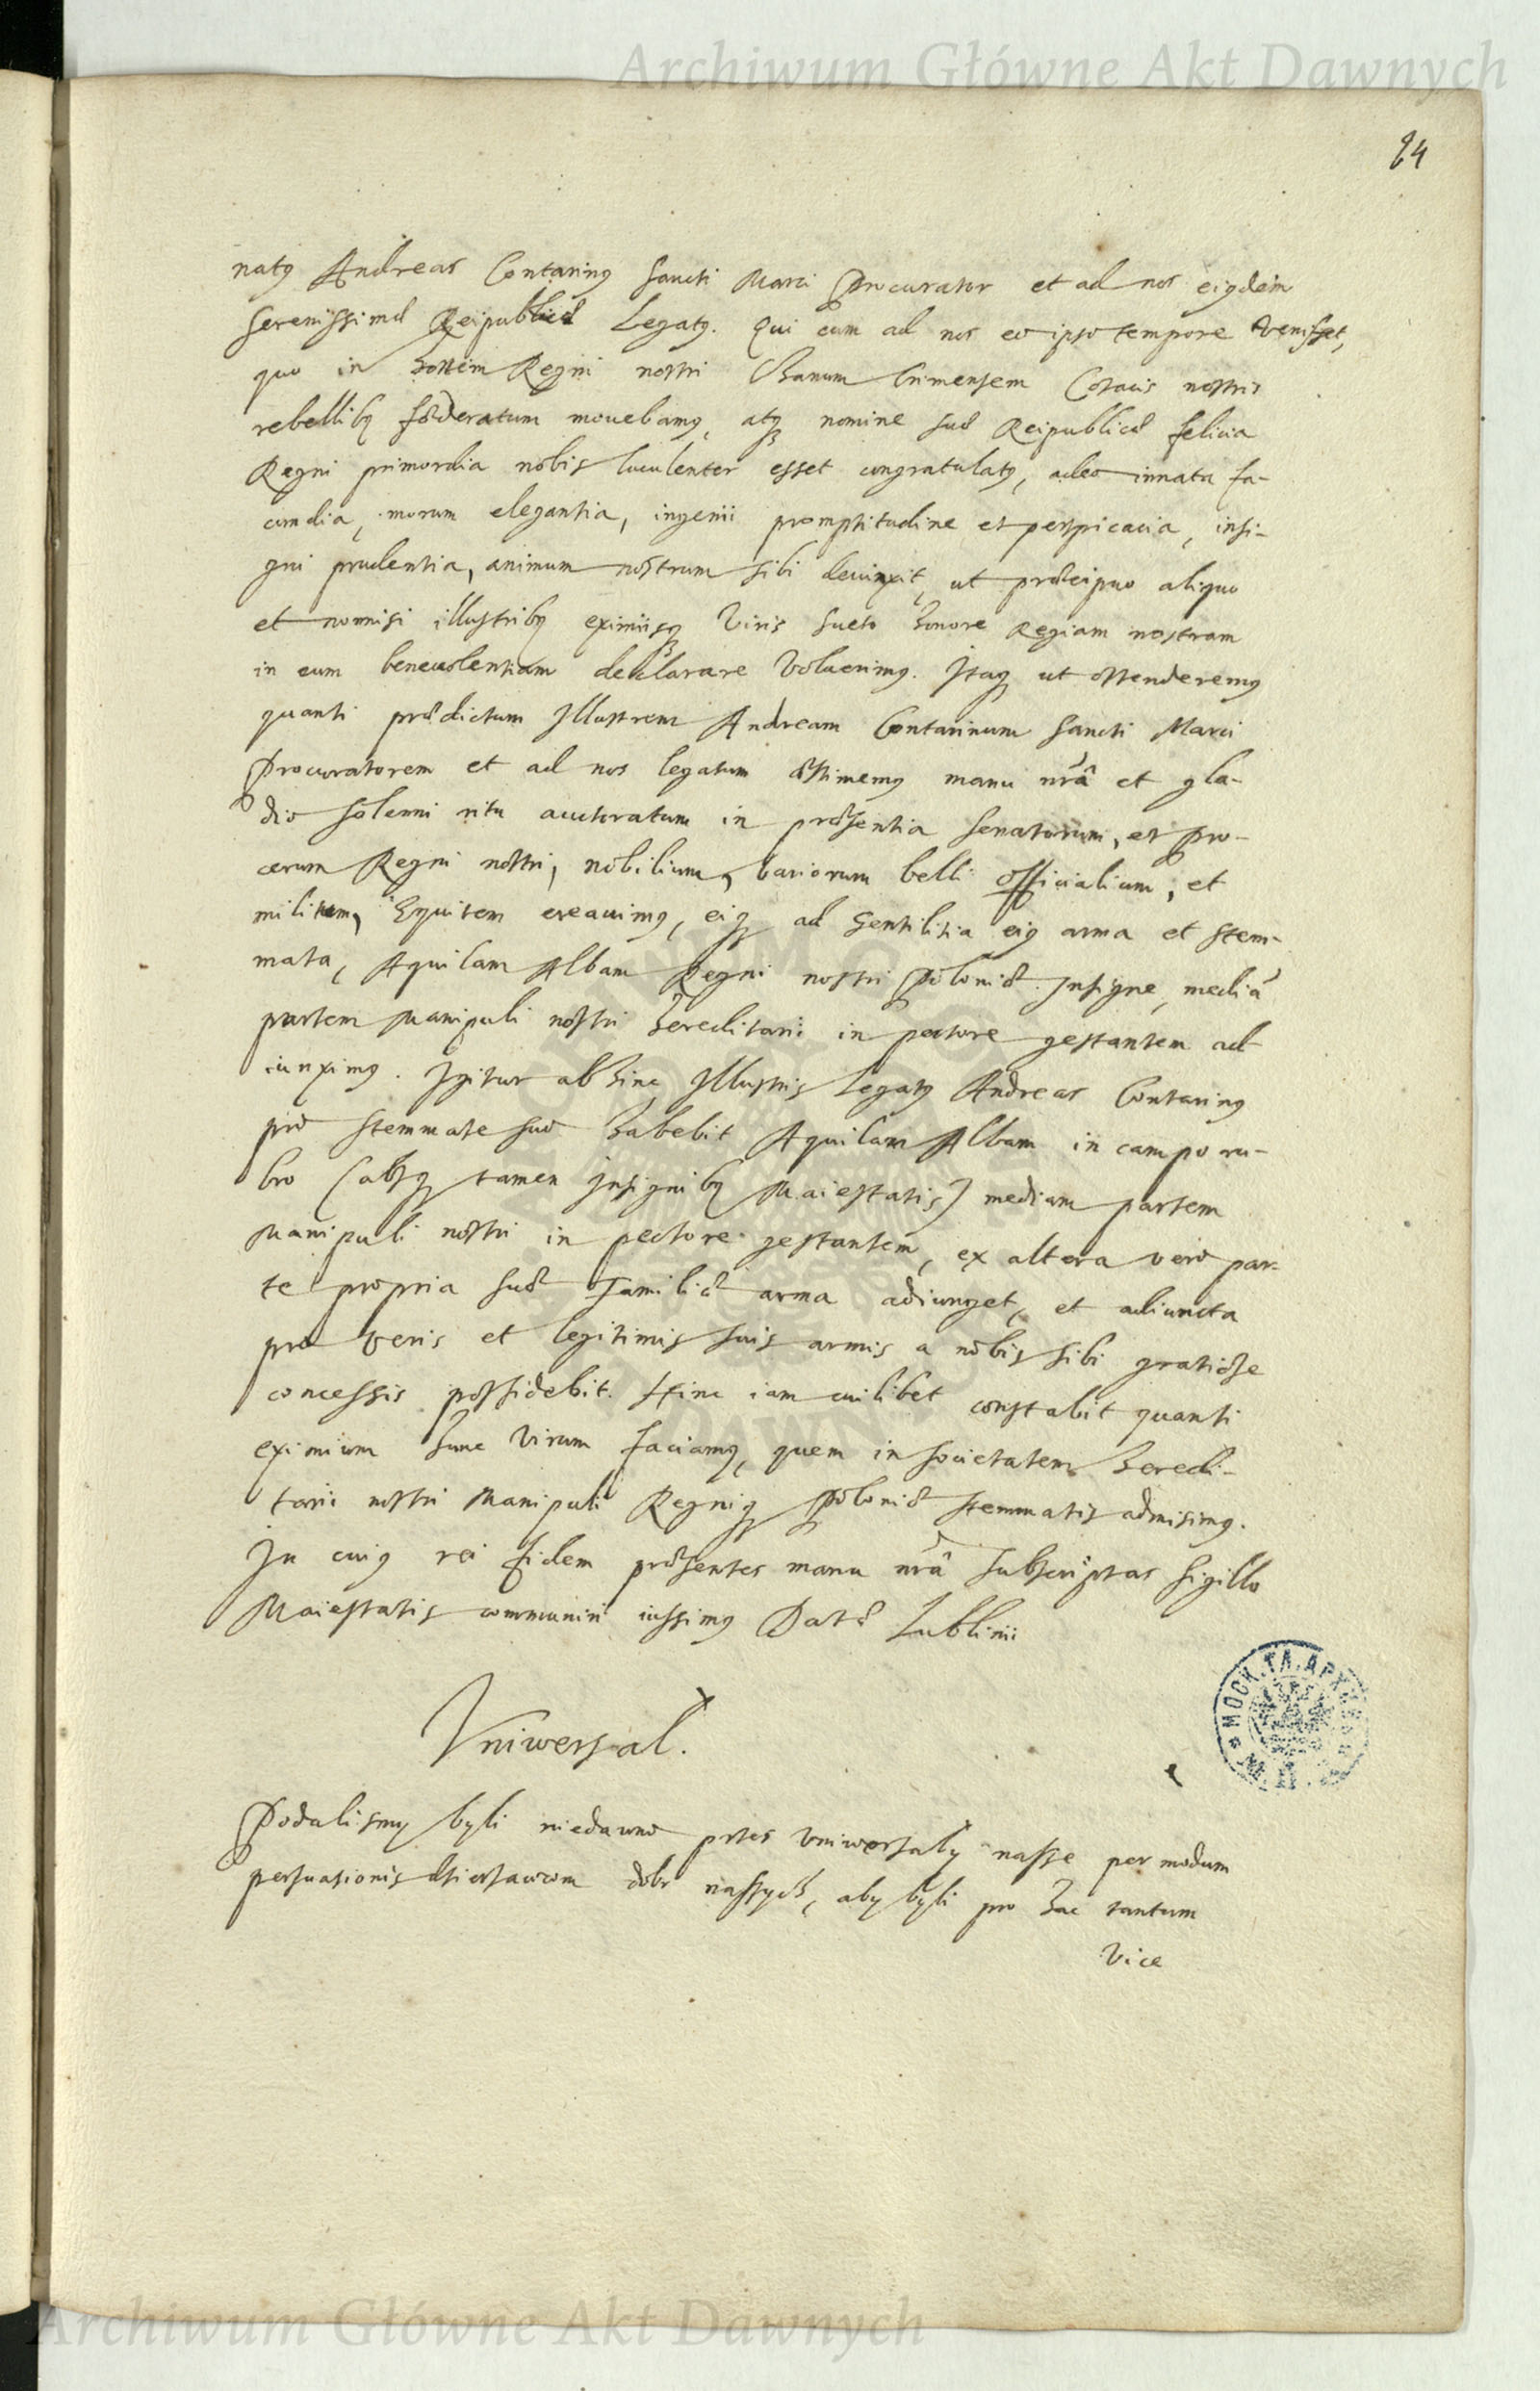 Archiwum Główne Akt Dawnych
64
natꝰ Andreas Contarinꝰ Sancti Marci Procurator et ad nos eiꝰdem
Serenissimæ Reipublicæ Legatꝰ. Qui cum ad nos eo ipso tempore venisset,
quo in hostem Regni nostri Chanum Crimensem Cosacis nostris
rebellibꝰ fœderatum mouebamꝰ, atqꝫ nomine suæ Reipublicæ felicia
Regni primordia nobis luculenter esset congratulatꝰ, adeo innata fa-
cundia, morum elegantia, ingenii promptitudine et perspicacia, insi-
gni prudentia, animum nostrum sibi deuinxit, ut præcipuo aliquo
et nonnisi illustribꝰ eximiisqꝫ Viris sueto honore Regiam nostram
in eum beneuolentiam declarare Voluerimꝰ. Itaqꝫ ut ostenderemꝰ
quanti prædictum Illustrem Andream Contarinum Sancti Marci
Procuratorem et ad nos legatum æstimemꝰ manu nrâ et gla-
dio solenni ritu auctoratum in præsentia Senatorum, et Pro-
cerum Regni nostri, nobilium, variorum belli officialium, et
militum, Equitem creauimꝰ, eiqꝫ ad Gentilitia eiꝰ arma et stem-
mata, Aquilam Albam Regni nostri Poloniæ Insigne, mediâ
partem Manipuli nostri Hereditarii in pectore gestantem ad
iunximꝰ. Igitur abhinc Illustris Legatꝰ Andreas Contarinꝰ
pro Stemmate suo habebit Aquilam Albam in campo ru-
bro (absqꝫ tamen Insignibꝰ Maiestatis) mediam partem
Manipuli nostri in pectore gestantem, ex altera vero par-
te propria suæ Familiæ arma adiunget, et adiuncta
pro veris et legitimis suis armis a nobis sibi gratiose
concessis possidebit. Hinc iam cuilibet constabit quanti
eximium hunc Virum faciamꝰ, quem in societatem Heredi-
tarii nostri Manipuli Regniqꝫ Poloniæ Stemmatis admisimꝰ.
In cuiꝰ rei fidem præsentes manu nrâ subscriptas Sigillo
Maiestatis communiri iussimꝰ Datæ Lublinii
Vniwersal.
Podalismy byli niedawno przes Vniwersaly nasse per modum
persuasionis dzierzawcom dobr nassych, aby byli pro hac tantum
Vice
Archiwum Główne Akt Dawnych